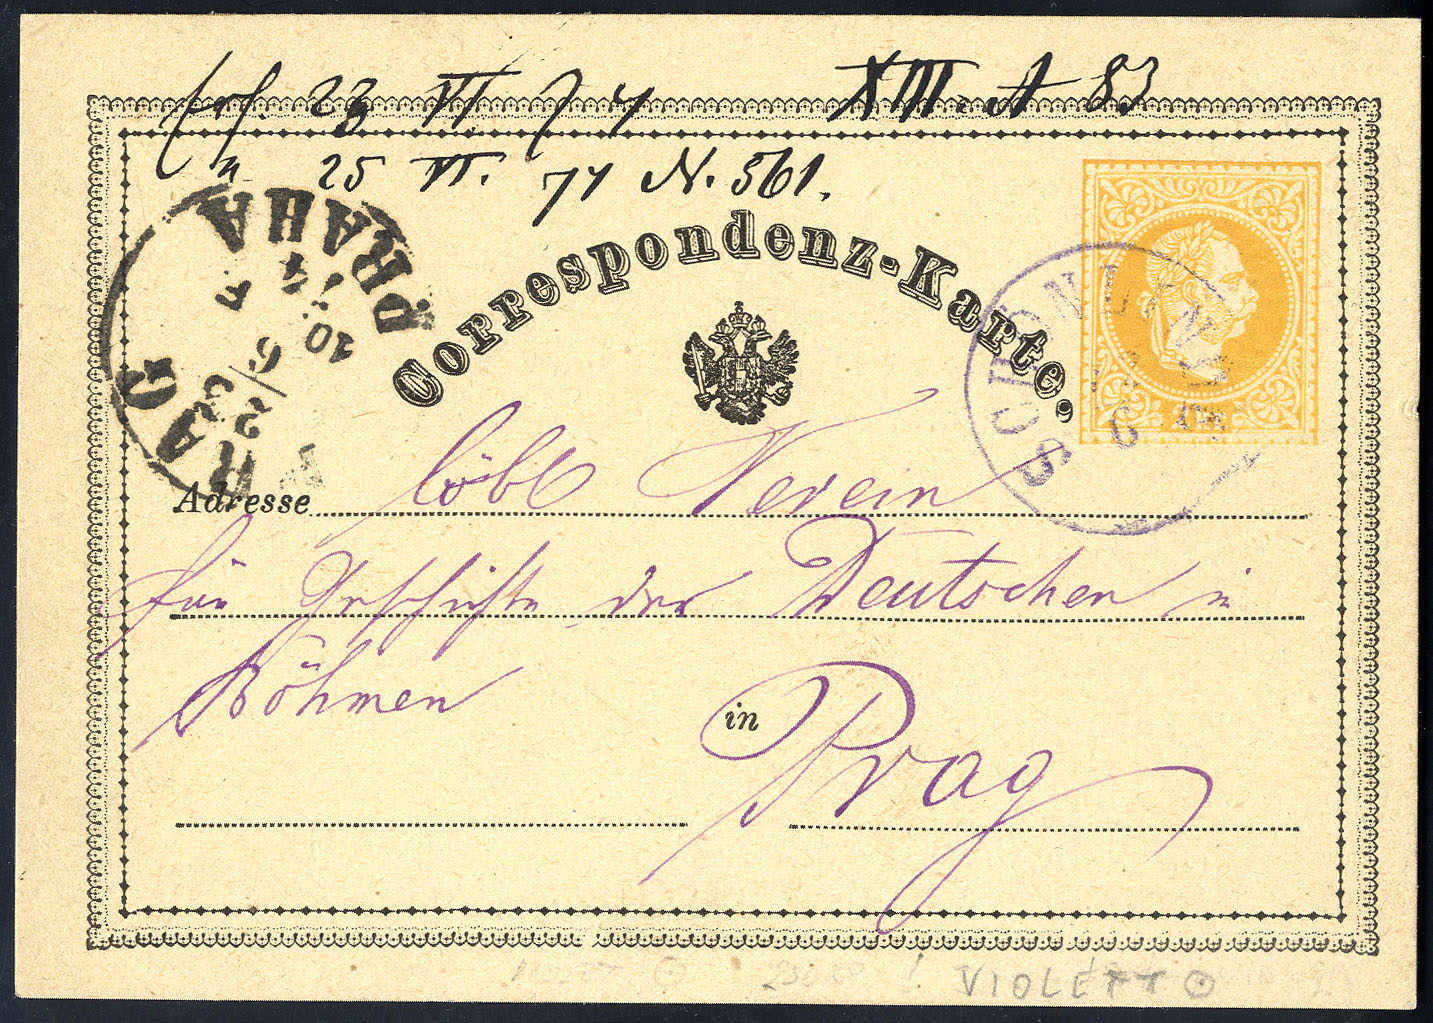 23 VI 74 XIII. A 83
25 VI. 74 N. 561.
Correspondenz-Karte.
PRAG PRAHA
23
6
74
SCHÖNLIN
Adresse löbl Verein
für Geschichte der Deutschen in
Böhmen
in Prag
VIOLETT